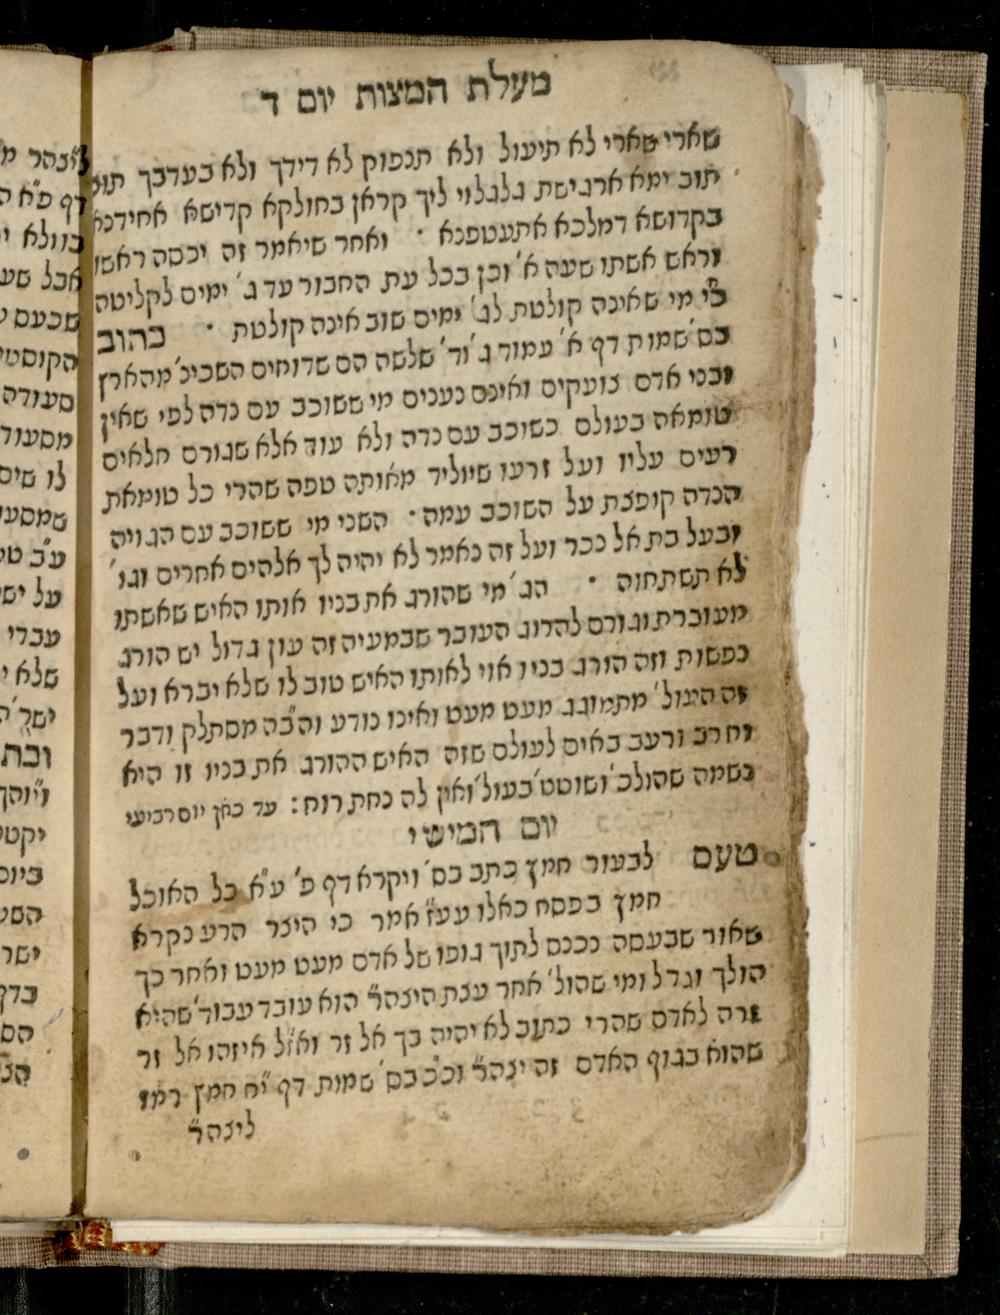 מעלת המצות יום ד
שארי שארי לא תיעול ולא תנפוק לא דידך ולא בעדבך תוב
תוב ימא ארגישת גלגלוי ליך קראן בחולקא קדישא אחידנא
בקדושא דמלכא אתעטפנא ׳ ואחר שיאמר זה יכסה ראשו
וראש אשתו שעה א׳ וכן בכל עת החבור עד ג׳ ימים לקליטה
כי מי שאינה קולטת לג׳ ימים שוב אינה קולטת ׳ כהוב
בס׳ שמות דף א׳ עמוד ג׳ וד׳ שלשה הם שדוחים השכינ׳ מהארץ
ובני אדם צועקים ואינם נענים מי ששוכב עם נדה לפי שאין
טומאה בעולם כשוכב עם נדה ולא עוד אלא שגורם חלאים
רעים עליו ועל זרעו שיוליד מאותה טפה שהרי כל טומאת
הנדה קופצת על השוכב עמה ׳ השני מי ששוכב עם הגויה
ובעל בת אל נכר ועל זה נאמר לא יהיה לך אלהים אחרים וגו׳
לא תשתחוה ׳ הג׳ מי שהורג את בניו אותו האיש שאשתו
מעוברת וגורם להרוג העובר שבמעיה זה עון גדול יש הורג
נפשות וזה הורג בניו אוי לאותו האיש טוב לו שלא יברא ועל
זה העול׳ מתמוגג מעט מעט ואינו נודע והב״ה מסתלק ודבר
וחרב ורעב באים לעולם שזה האיש ההורג את בניו זו היא
נשמה שהולכ׳ ושוטט׳ בעול׳ ואין לה נחת רוח : עד כאן יום רביעי
יום חמישי
טעם לבעור חמץ כתב בס׳ ויקרא דף פ׳ ע״א כל האוכל
חמץ בפסח כאלו עע״ז אמר כי היצר הרע נקרא
שאור שבעסה נכנס לתוך גופו של אדם מעט מעט ואחר כך
הולך וגדל ומי שהול׳ אחר עצת היצה״ר הוא עובד עבוד׳ שהיא
זרה לאדם שהרי כתוב לא יהיה בך אל זר ואז״ל איזהו אל זר
שהוא בגוף האדם זה יצה״ר וכ״כ בס׳ שמות דף י״ח חמץ רמז
ליצה״ר